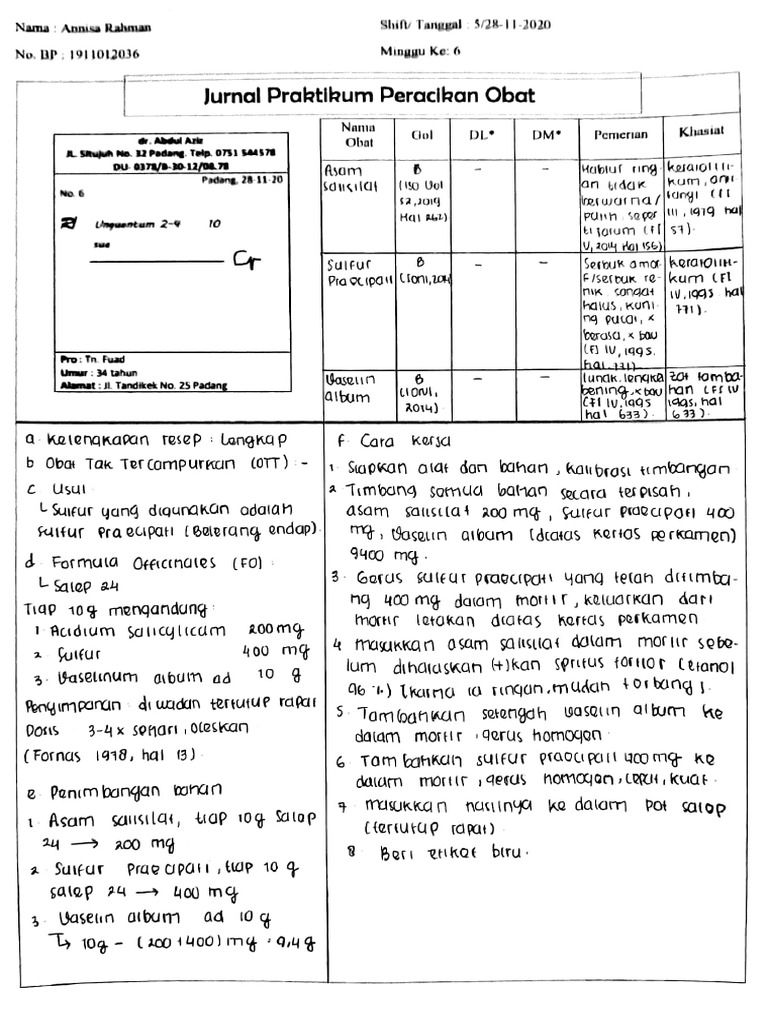 Nama : Annisa Rahman
Shift/ Tanggal : 5/28-11-2020
No. BP : 1911012036
Minggu Ke: 6
Jurnal Praktikum Peracikan Obat
dr. Abdul Aziz
JL. Situjuh No. 32 Padang. Telp. 0751 544578
DU- 0378/B-30-12/08.78
Padang, 28-11-20
No. 6
R/ Unguentum 2-4 10
sue
Pro : Tn. Fuad
Umur : 34 tahun
Alamat : Jl. Tandikek No. 25 Padang
Nama Obat
Gol
DL*
DM*
Pemerian
Khasiat
Asam
salisilat
B
(ISO Vol
52, 2019
Hal 262)
-
-
Hablur ring
an tidak
berwarna/
putih seper
ti jarum (FI
V, 2014 Hal 156)
keratoliti
kum, anti
fungi (FI
III, 1979 hal
57).
Sulfur
Praecipati
B
(Ioni, 2014
-
-
Serbuk amor
f/serbuk re
nik sangat
halus, kuni
ng pucat, x
berasa, x bau
(FI IV, 1995,
hal. 771)
keratoliti-
kum (FI
IV, 1995 hal
771).
Vaselin
album
B
(IONI,
2014)
-
-
lunak, lengke
bening, x bau
(FI IV, 1995
hal 633)
Zat tamba-
han (FI IV
1995, hal
633).
a. Kelengkapan resep : Langkap
b Obat Tak Tercampurkan (OTT) : -
c Usul
Sulfur yang digunakan adalah
sulfur praecipati (Belerang endap).
d. Formula Officinales (FO) :
Salep 24
Tiap 10g mengandung:
1. Acidium Salicylicum 200 mg
2. Sulfur 400 mg
3. Vaselinum album ad 10 g
Penyimpanan : diwadah tertutup rapat
Dosis 3-4x sehari, oleskan
(Fornas 1978, hal 13).
e. Penimbangan bahan
1. Asam salisilat, tiap 10g salep
24 → 200 mg
2. Sulfur praecipati, tiap 10 g
salep 24 → 400 mg
3. Vaselin album ad 10g
↳ 10g - (200+400) mg = 9,4g
f. Cara kerja
1. Siapkan alat dan bahan, kalibrasi timbangan
2. Timbang semua bahan secara terpisah,
asam salisilat 200 mg, sulfur praecipati 400
mg, Vaselin album (diatas kertas perkamen)
9400 mg.
3. Gerus sulfur praecipati yang telah ditimba-
ng 400 mg dalam mortir, keluarkan dari
mortir letakan diatas kertas perkamen
4. masukkan asam salisilat dalam mortir sebe-
lum dihaluskan (+)kan spritus fortior (etanol
96 %) (karna ia ringan, mudah terbang).
5. Tambahkan setengah vaselin album ke
dalam mortir, gerus homogen.
6. Tambahkan sulfur praecipati 400 mg ke
dalam mortir, gerus homogen, cepat, kuat.
7. masukkan hasilnya ke dalam pot salep
(tertutup rapat).
8. Beri etiket biru.